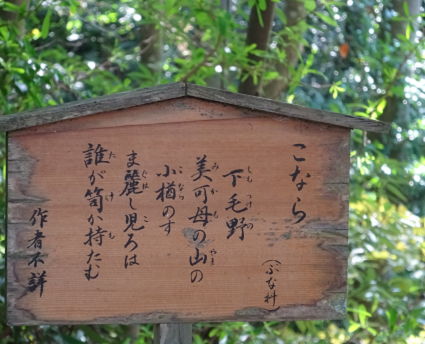 こなら
(ぶな科)
下毛野
美可母の山の
小楢のす
ま麗し児ろは
誰が笥か持たむ
作者不詳